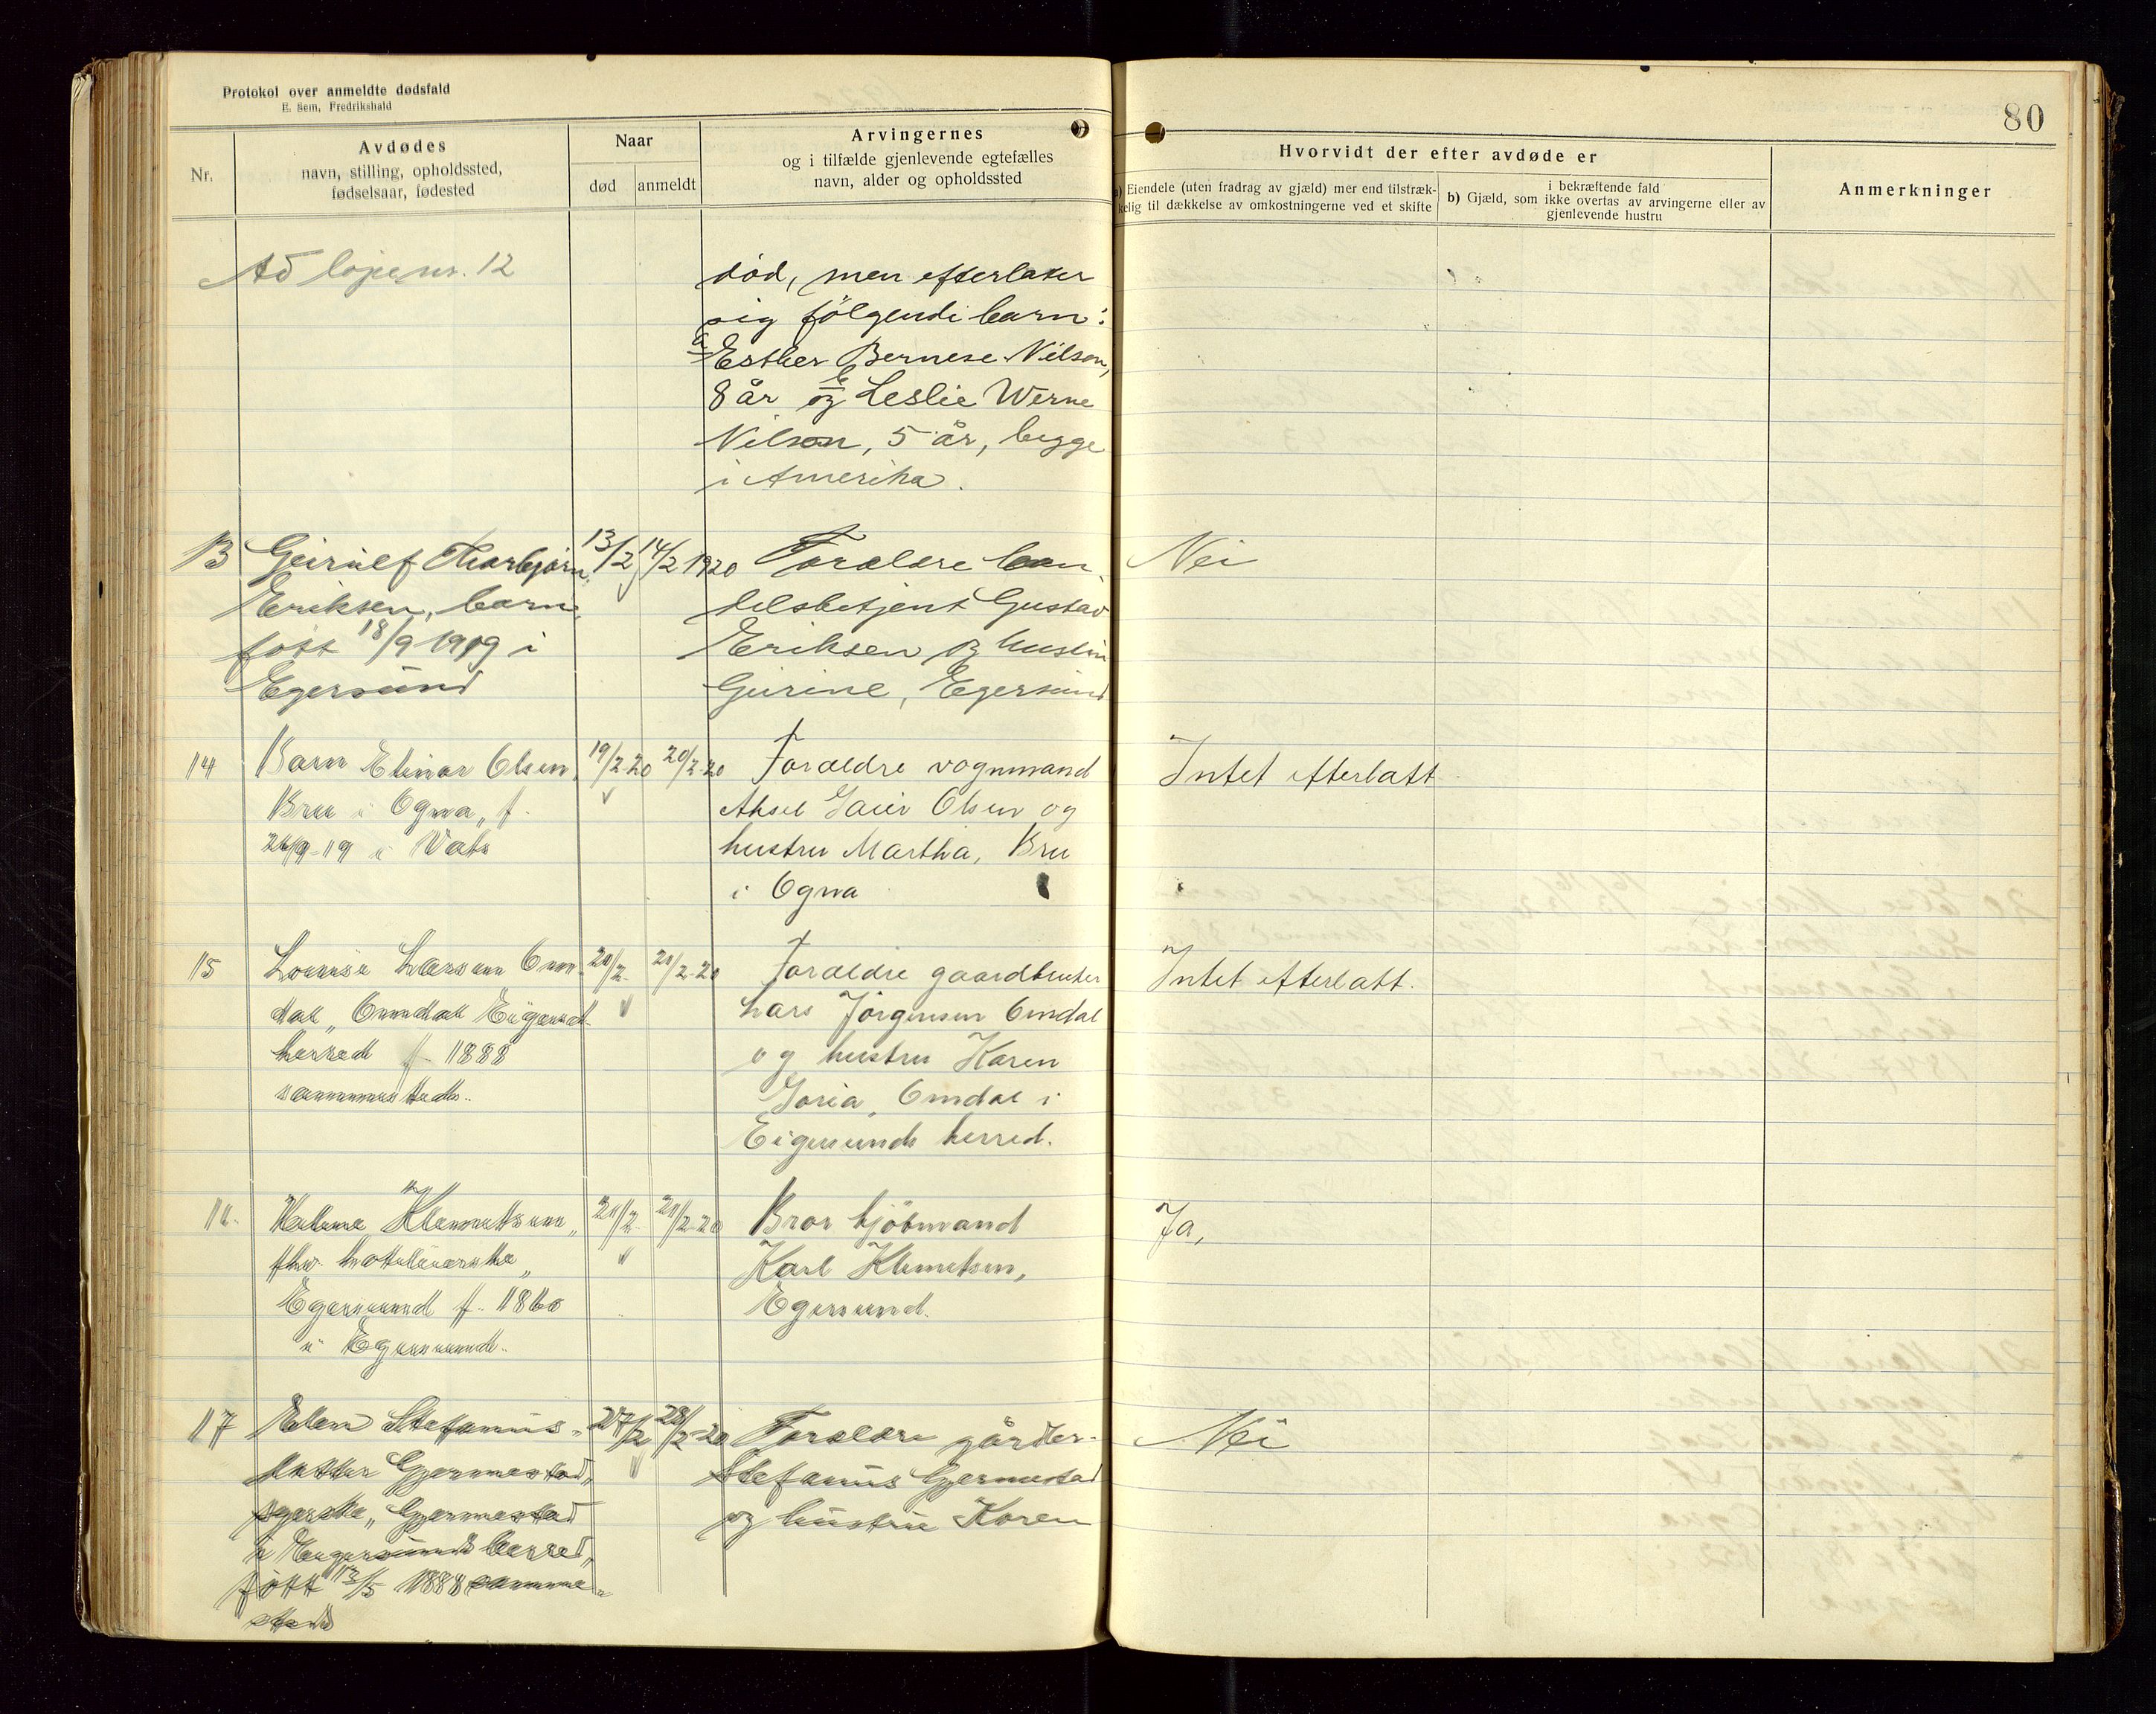 Protokol over anmeldte dødsfald
E. Sem, Fredrikshald
80
Nr.
Avdødes
navn, stilling, opholdssted,
fødselsaar, fødested
Naar
død
anmeldt
Arvingernes
og i tilfælde gjenlevende egtefælles
navn, alder og opholdssted
Hvorvidt der efter avdøde er
a) Eiendele (uten fradrag av gjæld) mer end tilstræk-
kelig til dækkelse av omkostningerne ved et skifte
i bekræftende fald
b) Gjæld, som ikke overtas av arvingerne eller av
gjenlevende hustru
Anmerkninger
Ad løpenr. 12
død, men efterlater
sig følgende barn:
a Esther Bernese Nilson,
8 år og b Leslie Werne
Nilson, 5 år, begge
i Amerika.
13
Geirulf Thorbjørn
Eriksen, barn,
født 18/9 1919 i
Egersund
13/2
14/2 1920
Forældre han-
delsbetjent Gustav
Eriksen og hustru
Gurine, Egersund
Nei
14
Barn Elinar Olsen,
Bru i Ogna, f.
26/9-19 i Vats
19/2-20
20/2-20
Forældre vognmand
Aksel Olsen og
hustru Martha, Bru
i Ogna
Intet efterlatt
15
Lovise Larsen Om-
dal, Omdal Eigersund
herred f. 1888
sammesteds.
20/2-
21/2-20
Forældre gaardbruker
Lars Jørgensen Omdal
og hustru Karen
Omdal i
Eigersunds herred.
Intet efterlatt.
16.
Klemetsen,
fhv. hotelværske,
Egersund f. 1860
i Egersund.
21/2-
21/2-20
Bror kjøbmand
Karl Klemetsen,
Egersund.
Ja,
17
Elen Stefanus-
datter Gjermestad,
Gjermestad
i Eigersunds herred,
født 13/5 1888 samme-
steds
27/2
28/2-20
Forældre gårdbr.
Stefanus Gjermestad
og hustru Karen
Nei